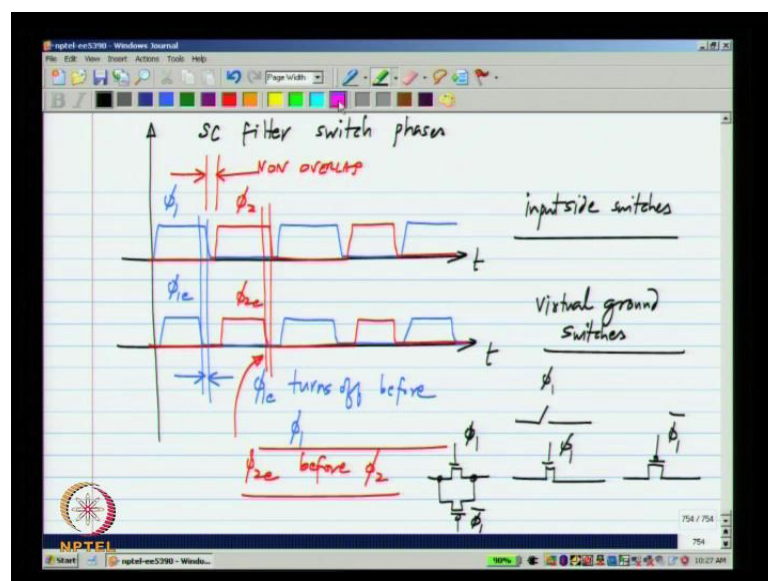 nptel-ee5390 - Windows Journal
File Edit View Insert Actions Tools Help
Page Width
B I
SC filter switch phases
NON OVERLAP
ϕ1 ϕ2
input side switches
t
ϕ1e ϕ2e
virtual ground
switches
t
ϕ1e turns off before
ϕ1
ϕ2e before ϕ2
ϕ1
ϕ1 ϕ1 ϕ̅1
ϕ̅1
754 / 754
754
NPTEL
Start nptel-ee5390 - Windo... 90% 10:27 AM